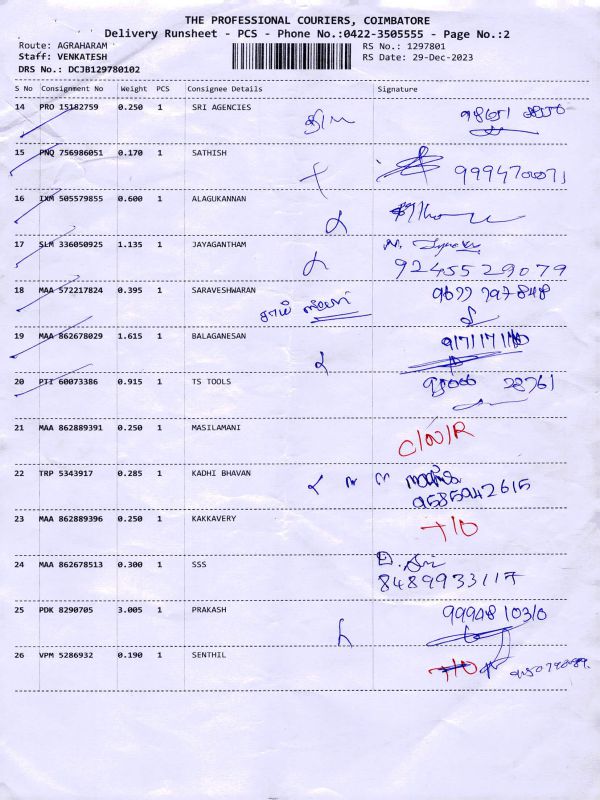 THE PROFESSIONAL COURIERS, COIMBATORE
Delivery Runsheet - PCS - Phone No.:0422-3505555 - Page No.:2
Route: AGRAHARAM RS No.: 1297801
Staff: VENKATESH RS Date: 29-Dec-2023
DRS No.: DCJB129780102
S No Consignment No Weight PCS Consignee Details Signature
14 PRO 15182759 0.250 1 SRI AGENCIES
15 PNQ 756986051 0.170 1 SATHISH
16 IXM 505579855 0.600 1 ALAGUKANNAN
17 SLM 336050925 1.135 1 JAYAGANTHAM
9245529079
18 MAA 572217824 0.395 1 SARAVESHWARAN 9677 797848
19 MAA 862678029 1.615 1 BALAGANESAN
20 PTI 60073386 0.915 1 TS TOOLS
21 MAA 862889391 0.250 1 MASILAMANI
22 TRP 5343917 0.285 1 KADHI BHAVAN
9585942615
23 MAA 862889396 0.250 1 KAKKAVERY
24 MAA 862678513 0.300 1 SSS
8489933117
25 PDK 8290705 3.005 1 PRAKASH 9994810310
26 VPM 5286932 0.190 1 SENTHIL